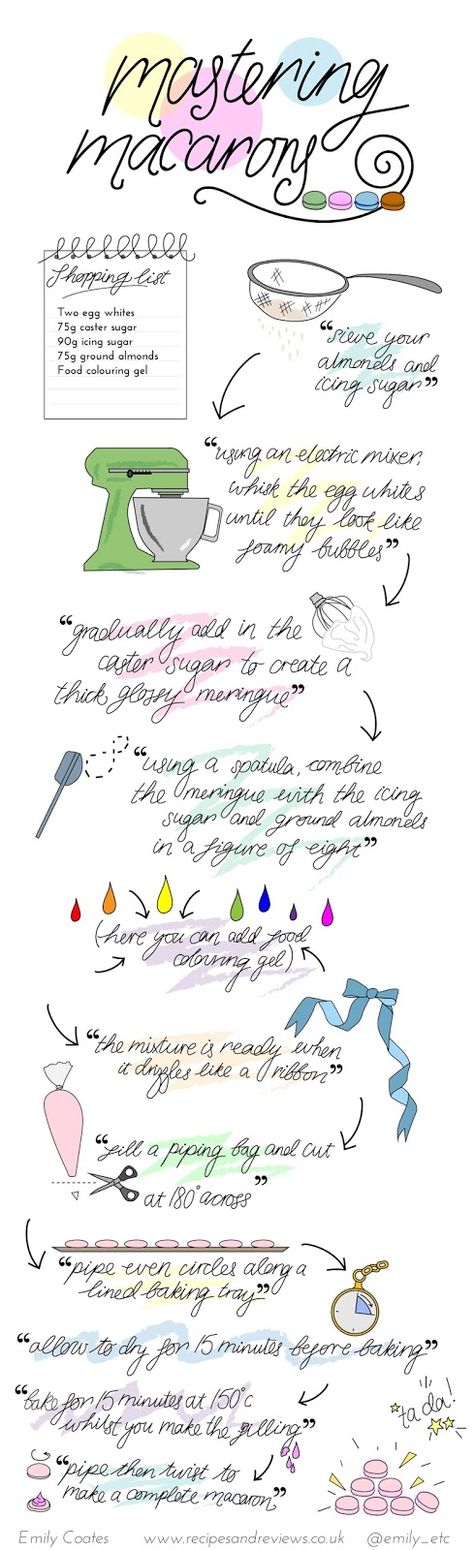 mastering
macarons
Shopping list
Two egg whites
75g caster sugar
90g icing sugar
75g ground almonds
Food colouring gel
“sieve your
almonds and
icing sugar”
“using an electric mixer,
whisk the egg whites
until they look like
foamy bubbles”
“gradually add in the
caster sugar to create a
thick glossy meringue”
“using a spatula, combine
the meringue with the icing
sugar and ground almonds
in a figure of eight”
(here you can add food
colouring gel)
“the mixture is ready when
it drizzles like a ribbon”
“fill a piping bag and cut
at 180° across”
“pipe even circles along a
lined baking tray”
“allow to dry for 15 minutes before baking”
“bake for 15 minutes at 150°c
whilst you make the filling”
ta da!
“pipe then twist to
make a complete macaron”
Emily Coates www.recipesandreviews.co.uk @emily_etc